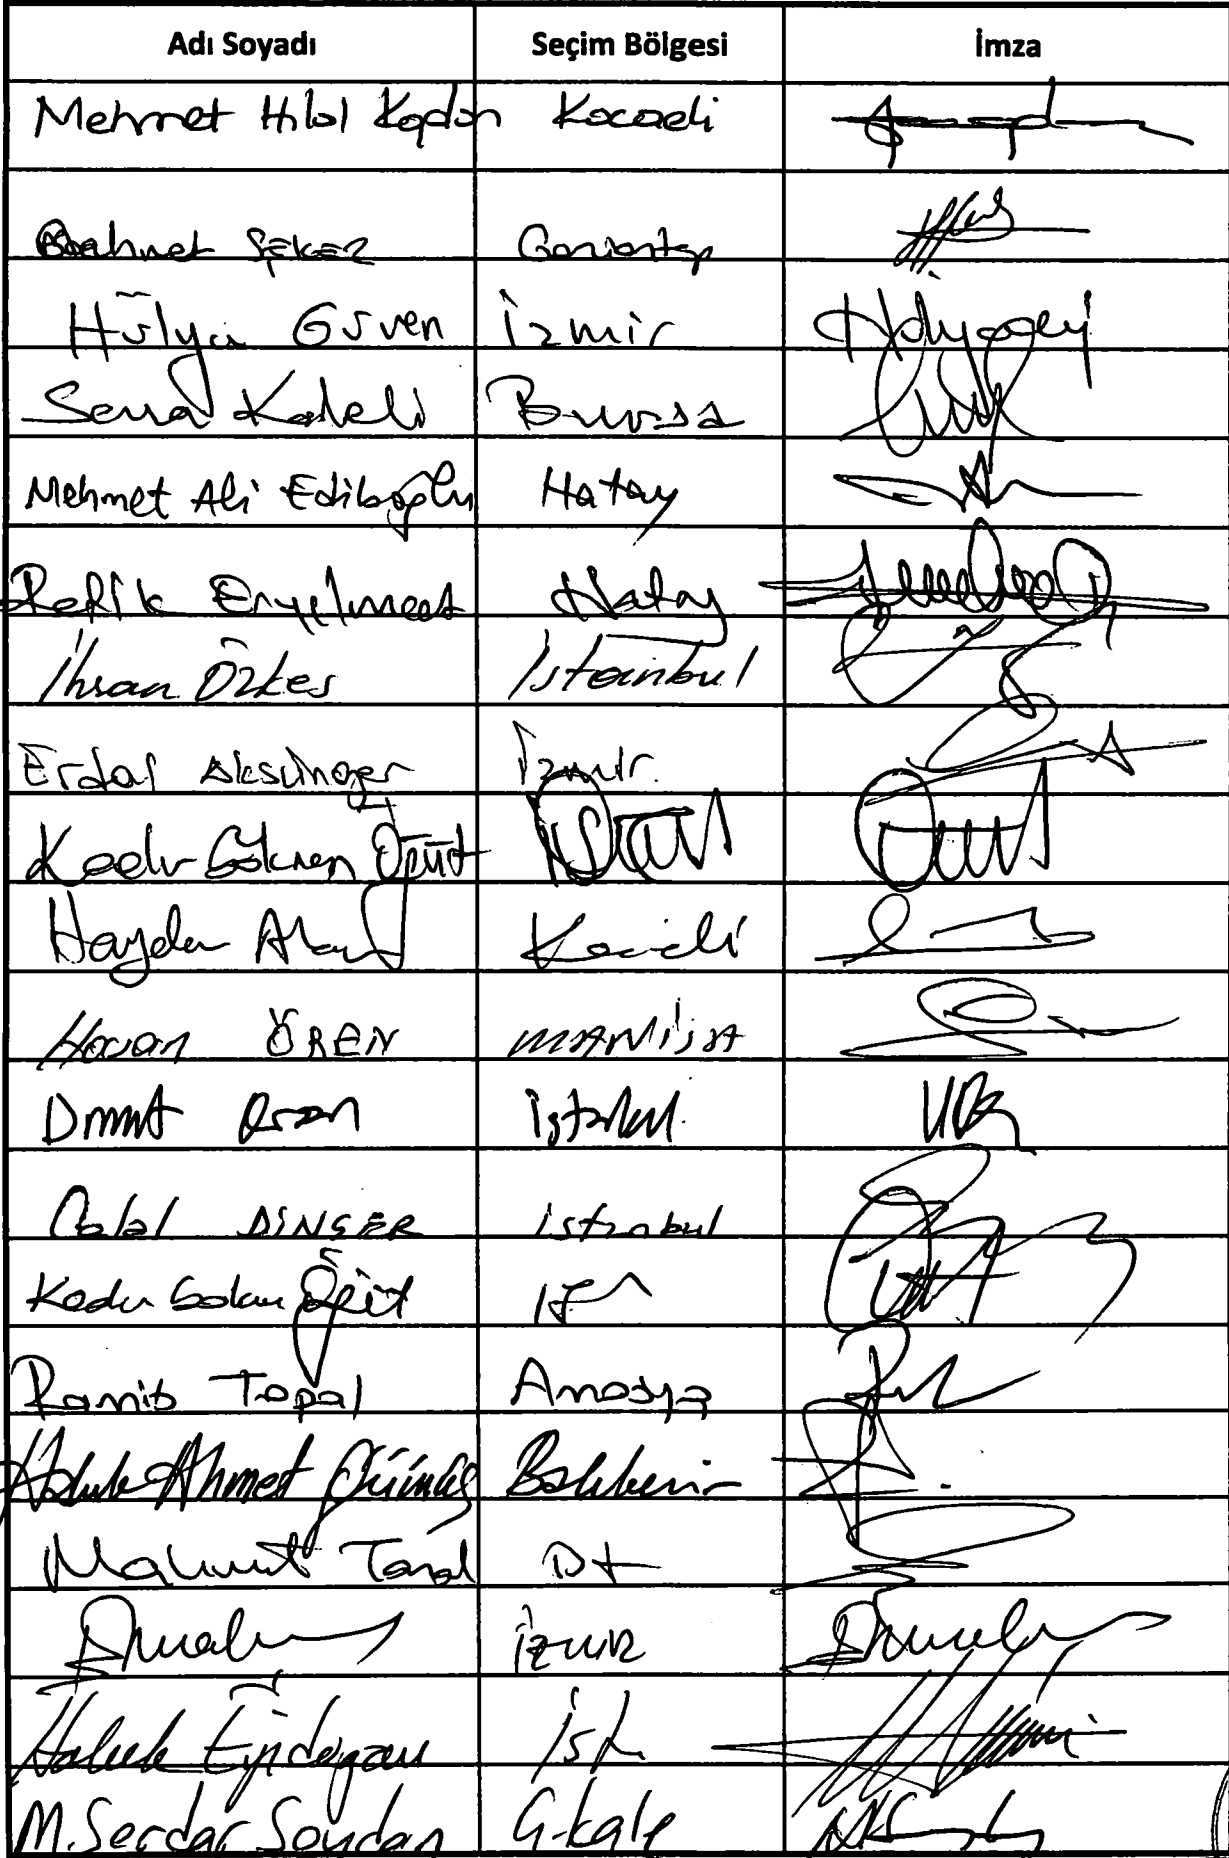 Adı Soyadı Seçim Bölgesi İmza
Mehmet Hilal Kaplan Kocaeli
Mehmet ŞEKER Gaziantep
Hülya Güven İzmir
Sena Kaleli Bursa
Mehmet Ali Ediboğlu Hatay
Refik Eryılmaz Hatay
İhsan Özkes İstanbul
Erdal Aksünger İzmir
Kadir Gökmen Öğüt
Haydar Akar Kocaeli
Hasan ÖREN MANİSA
Umut Oran İstanbul
Celal DİNÇER istanbul
Kadir Gökmen Öğüt İST
Ramis Topal Amasya
Haluk Ahmet Gümüş Balıkesir
Mahmut Tanal İst
İZMİR
Haluk Eyidoğan İst
M. Serdar Soydan Ç.kale